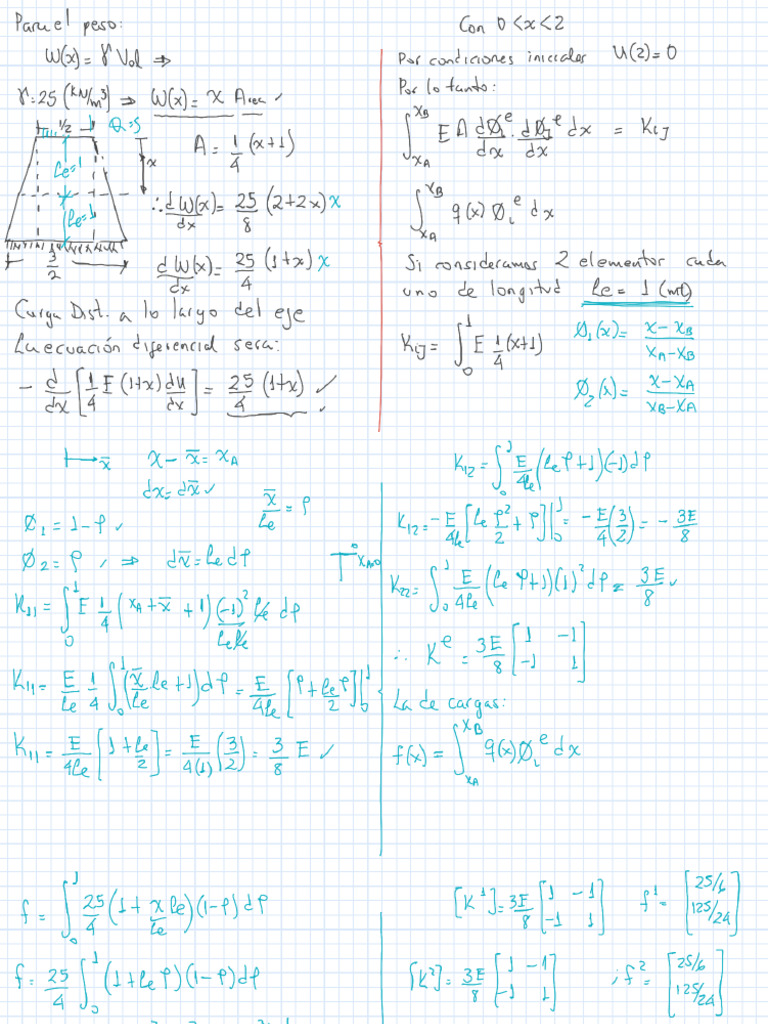 Para el peso:
W(x) = γ Vol ⇒
γ = 25 (kN/m³) ⇒ W(x) = x Area ✓
1/2 Q=5
A = 1/4 (x+1)
x
le=1
le=1
∴ dW(x)/dx = 25/8 (2+2x) x
3/2
dW(x)/dx = 25/4 (1+x) x
Carga Dist. a lo largo del eje
La ecuación diferencial sera:
- d/dx [1/4 E (1+x) du/dx] = 25/4 (1+x) ✓
Con 0<x<2
Por condiciones iniciales U(2)=0
Por lo tanto:
∫_{xA}^{xB} E A dØ_i^e/dx · dØ_J^e/dx dx = K_{IJ}
∫_{xA}^{xB} q(x) Ø_i^e dx
Si consideramos 2 elementor cada
uno de longitud le = 1 (mt)
K_{IJ} = ∫_0^1 E 1/4 (x+1)
Ø₁(x) = (x-xB)/(xA-xB)
Ø₂(x) = (x-xA)/(xB-xA)
x̄ x - x̄ = xA
dx = dx̄ ✓
Ø₁ = 1-ρ ✓ x̄/le = ρ
Ø₂ = ρ ✓ ⇒ dx̄ = le dρ
K₁₁ = ∫_0^1 E 1/4 (xA + x̄ + 1) (-1)²/(le le) le dρ
K₁₁ = E/le 1/4 ∫_0^1 (x̄/le le + 1) dρ = E/4le [ρ + le ρ/2]|_0^1
K₁₁ = E/4le [1 + le/2] = E/4(1) (3/2) = 3/8 E ✓
K₁₂ = ∫_0^1 E/4le (le ρ + 1)(-1) dρ
K₁₂ = -E/4le [le ρ²/2 + ρ]|_0^1 = -E/4 (3/2) = -3E/8
K₂₂ = ∫_0^1 E/4le (le ρ+1)(1)² dρ = 3E/8 ✓
∴ K^e = 3E/8 [1 -1; -1 1]
La de cargas:
f(x) = ∫_{xA}^{xB} q(x) Ø_i^e dx
f = ∫_0^1 25/4 (1 + x/le le)(1-ρ) dρ
f = 25/4 ∫_0^1 (1 + le ρ)(1-ρ) dρ
[K¹] = 3E/8 [1 -1; -1 1] f¹ = [25/6; 125/24]
[K²] = 3E/8 [1 -1; -1 1] ; f² = [25/6; 125/24]